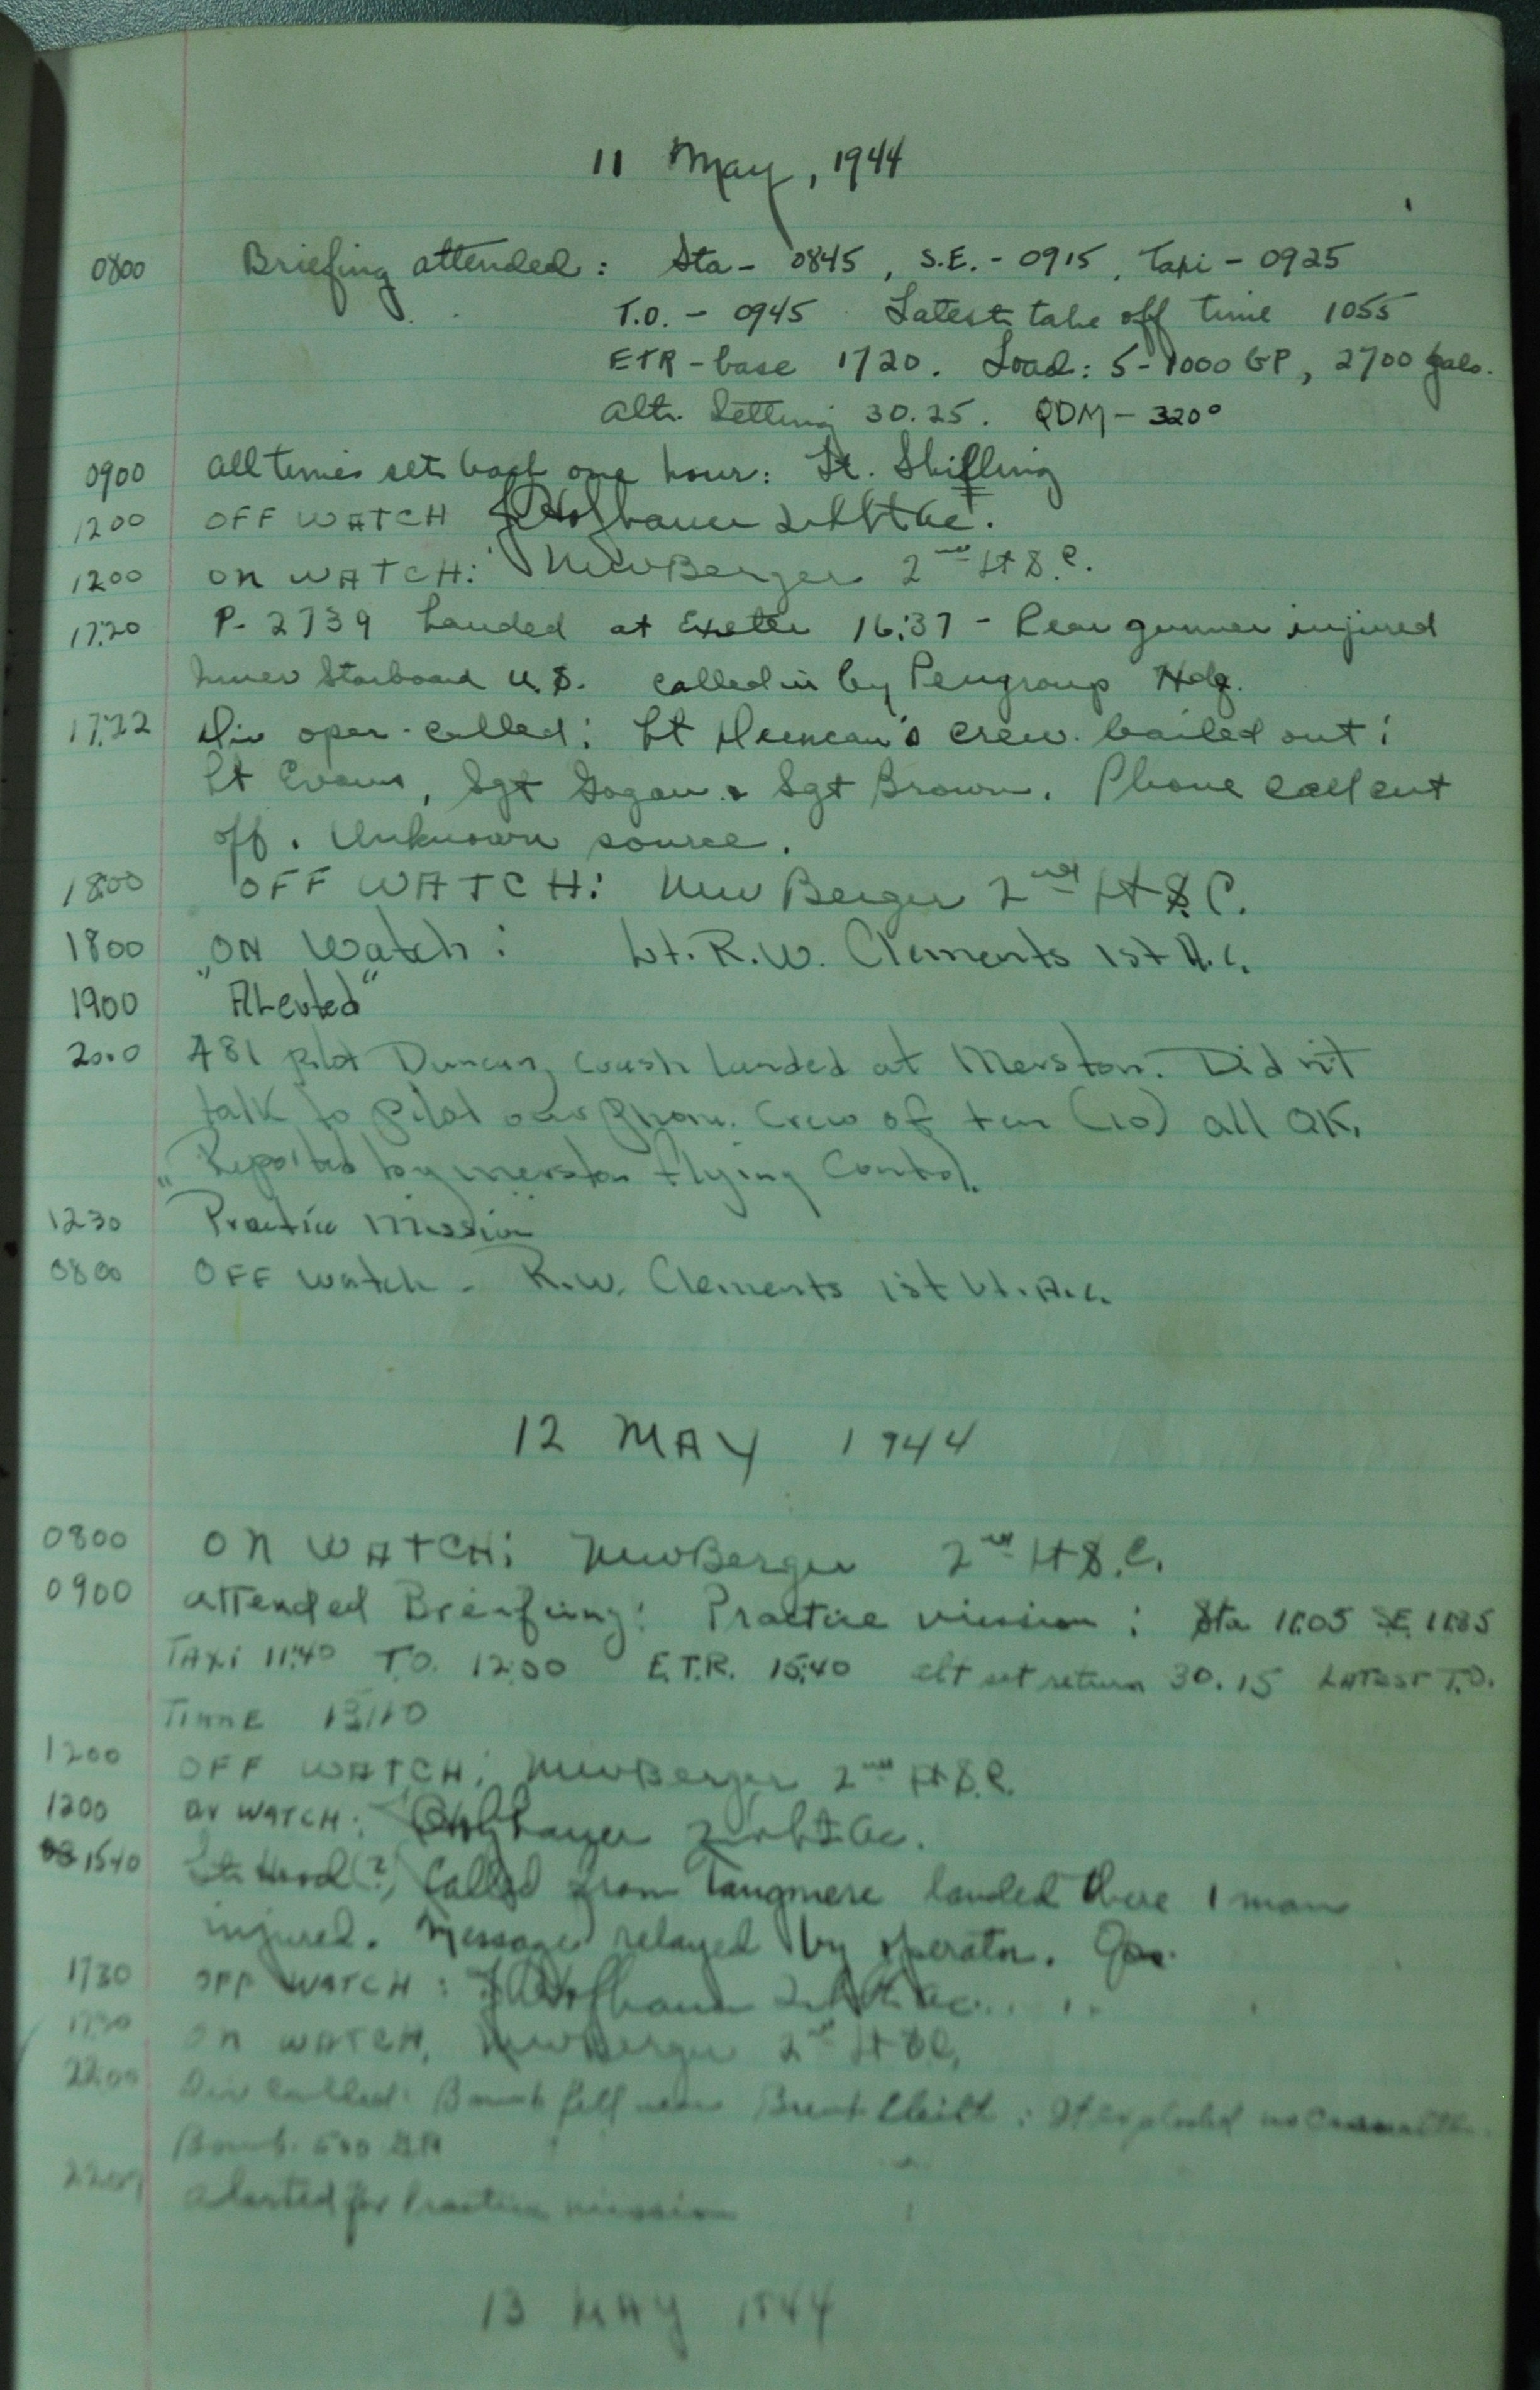 11 May, 1944
0800 Briefing attended: Sta - 0845, S.E. - 0915, Taxi - 0925
T.O. - 0945 Latest take off time 1055
ETR - base 1720. Load: 5-1000 GP, 2700 gals.
Alt. Setting 30.25. QDM - 320°
0900 All times set back one hour: Lt. Shilling
1200 OFF WATCH 2nd Lt ac.
1200 ON WATCH: NewBerger 2nd Lt S.C.
17:20 P-2739 Landed at Exeter 16:37 - Rear gunner injured
Inner Starboard U.S. called in by Pengroup Hdq.
17:22 Div oper. called: Lt Duncan's crew bailed out:
Lt Evans, Sgt Gogan & Sgt Brown. Phone call cut
off. Unknown source.
18:00 OFF WATCH: NewBerger 2nd Lt S.C.
1800 ON Watch: Lt. R.W. Clements 1st A.C.
1900 "Alerted"
2000 481 pilot Duncan, crash landed at Merston. Didn't
talk to pilot over phone. Crew of ten (10) all OK.
Reported by Merston flying Control.
1230 "Practice Mission"
0800 OFF Watch - R.W. Clements 1st Lt. A.C.
12 MAY 1944
0800 ON WATCH: NewBerger 2nd Lt S.C.
0900 attended Breifing: Practice mission: Sta 11:05 S.E. 11:35
TAXi 11:40 T.O. 12:00 E.T.R. 15:40 alt set return 30.15 LATEST T.O.
TIME 13:10
1200 OFF WATCH: NewBerger 2nd Lt S.C.
1200 ON WATCH: 2nd Lt ac.
1540 Lt. Hood (?) Called from Tangmere landed there 1 man
injured. Message relayed by operator.
1730 OFF WATCH: 2nd Lt ac.
1730 ON WATCH. NewBerger 2nd Lt S.C.
22:00 Div called: Bomb fell near : It exploded no
Bomb 500
alerted for Practice mission
13 MAY 1944